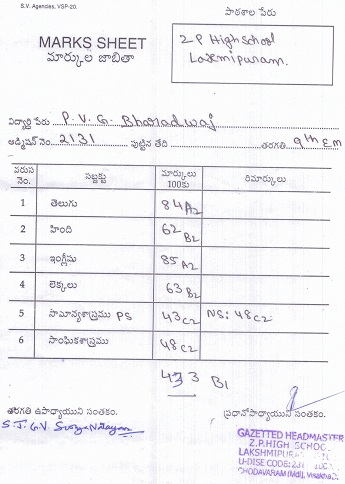 S.V. Agencies, VSP-20.
పాఠశాల పేరు
MARKS SHEET
మార్కుల జాబితా
Z P High School
Laxmipuram.
విద్యార్థి పేరు P. V. G. Bharadwaj
అడ్మిషన్ నెం. 2131 పుట్టిన తేది తరగతి 9th E m
వరుస నెం. సబ్జక్టు మార్కులు 100కు రిమార్కులు
1 తెలుగు 84 A2
2 హింది 62 B2
3 ఇంగ్లీషు 85 A2
4 లెక్కలు 63 B2
5 సామాన్యశాస్త్రము PS 43 C2 NS: 48 C2
6 సాంఘికశాస్త్రము 48 C2
433 B1
తరగతి ఉపాధ్యాయుని సంతకం. ప్రధానోపాధ్యాయుని సంతకం.
S. J. G. V. Suryanarayana
GAZETTED HEADMASTER
Z.P.HIGH
LAKSHMIPUR
U-DISE CODE:
CHODAVARAM (Mdl),